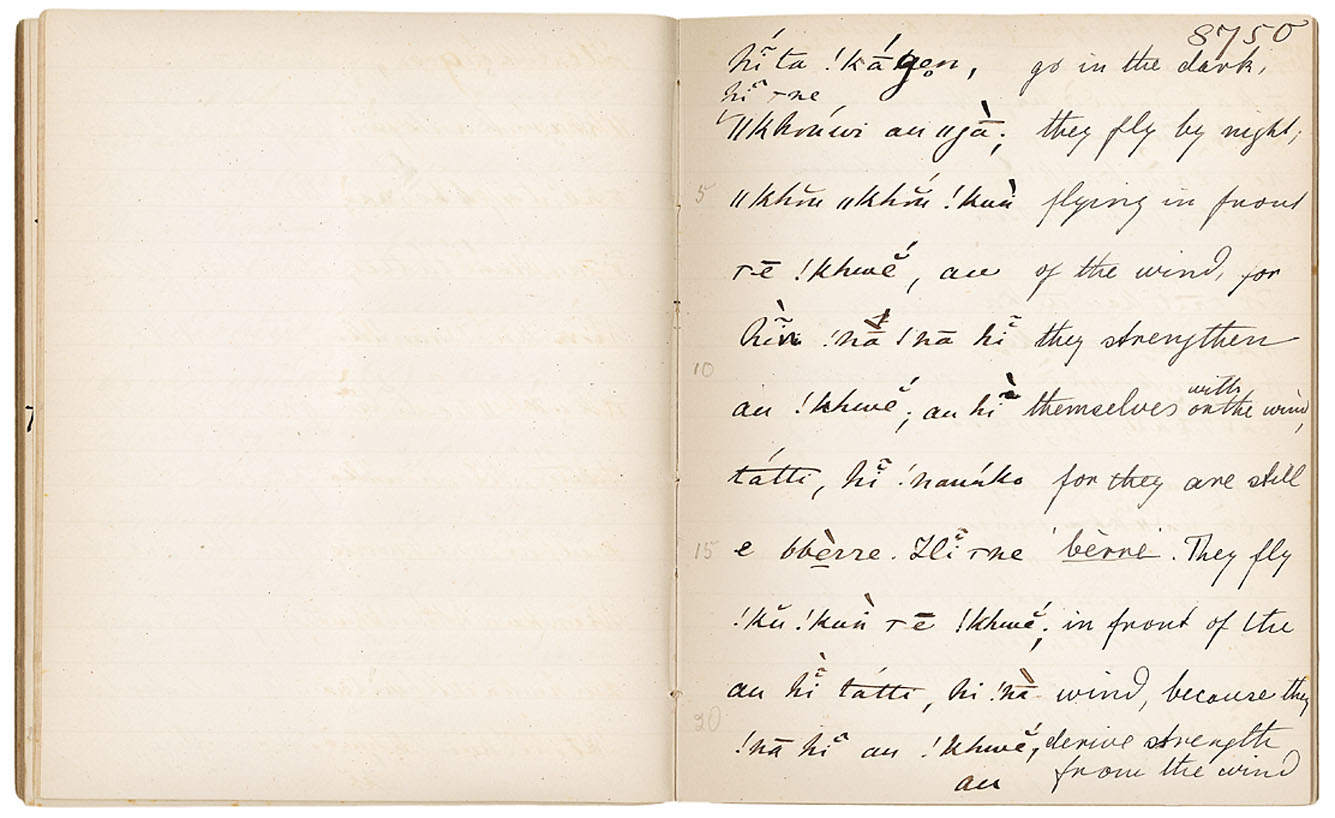 8750
hĩ́ ta !kā́gen, go in the dark,
hĩ ⌐ne
"khoúwi au "gā̀; they fly by night,
5 "khŏu "khŏú !kuǜ flying in front
⌐ē !khwĕ́, au of the wind, for
!nā !nā hĩ they strengthen
10
au !khwĕ́; au hĩ̀ themselves on the wind,
with
tátti, hĩ !naúnko for they are still
15 e bbèrre. Hĩ ⌐ne bĕrre. They fly
!kŭ !kuǜ ⌐ē !khwĕ́; in front of the
au hĩ̀ tátti, hi !nā̀ wind, because they
20
!nā hĩ au !khwĕ́, derive strength
au from the wind